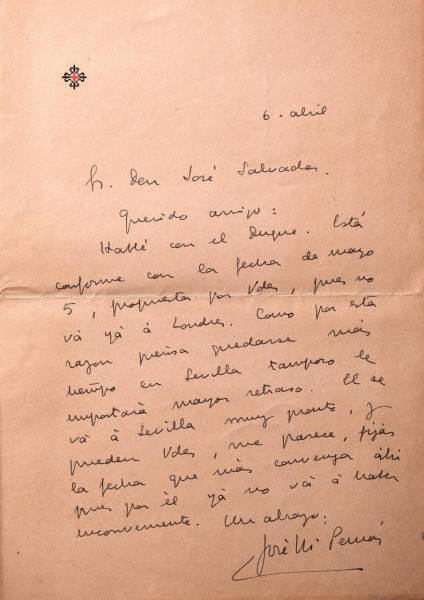 6 - abril
Sr. Don José Salvador.
Querido amigo:
Hablé con el Duque. Está
conforme con la fecha de mayo
5, propuesta por Vdes, pues no
và yà à Londres. Como por esta
razon piensa quedarse más
tiempo en Sevilla tampoco le
importará mayor retraso. El se
và à Sevilla muy pronto, y
pueden Vdes, me parece, fijar
la fecha que más convenga ahí
pues por èl yà no và à haber
inconveniente. Un abrazo:
José Mª Pemán